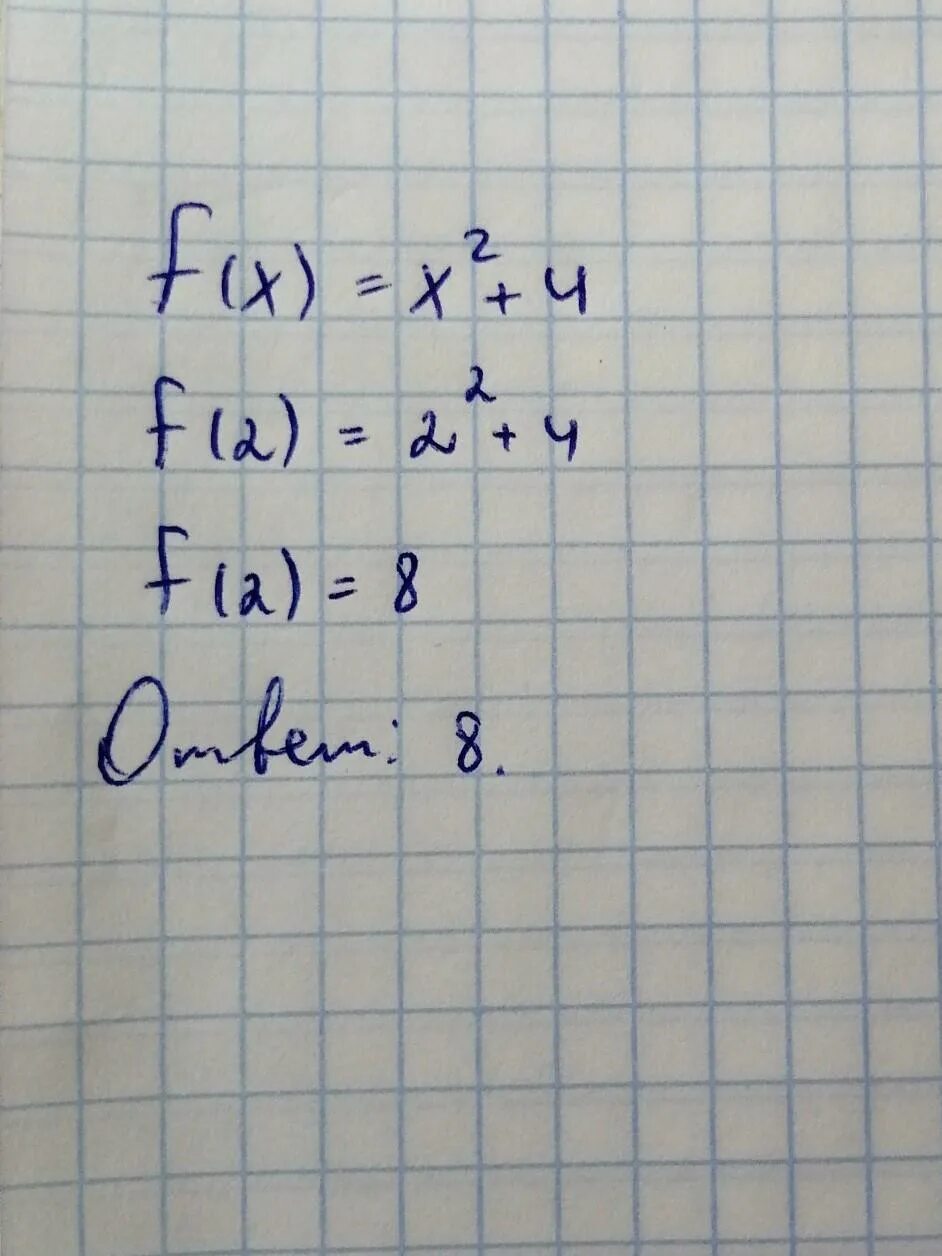 f(x) = x² + 4
f(2) = 2² + 4
f(2) = 8
Ответ: 8.